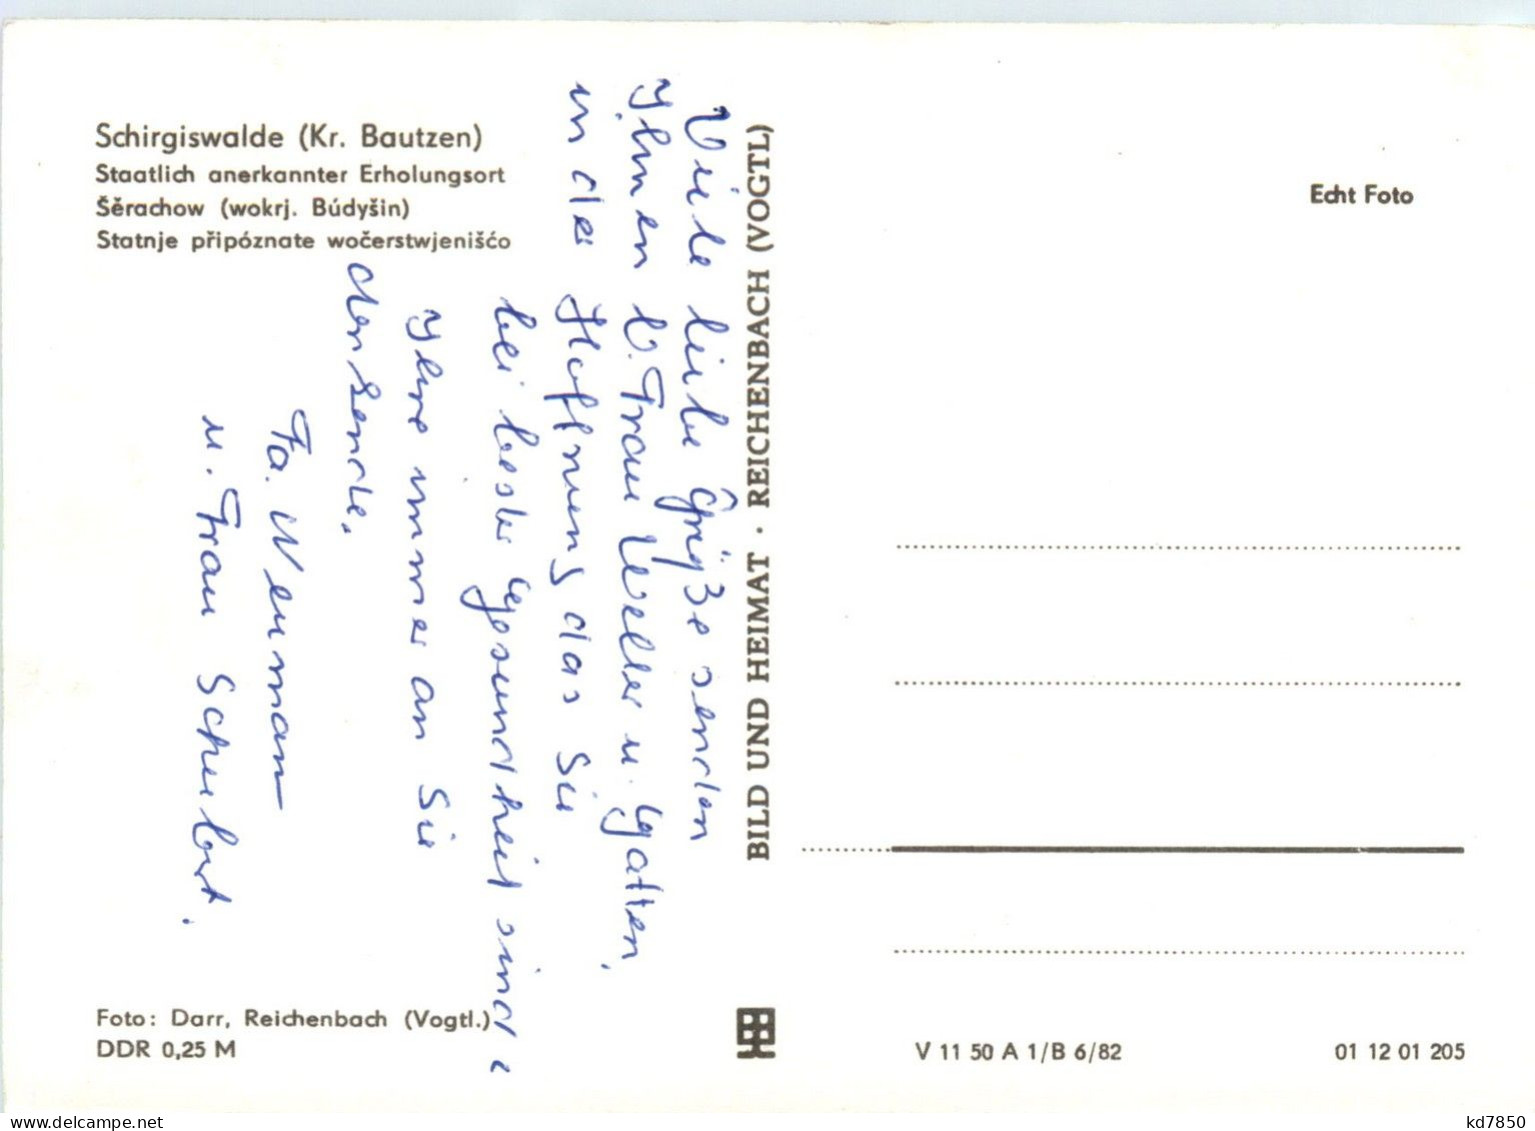 Schirgiswalde (Kr. Bautzen)
Staatlich anerkannter Erholungsort
Šěrachow (wokrj. Búdyšin)
Statnje připóznate wočerstwjenišćo
Viele liebe Grüße senden
Ihnen l. Frau Weller u. Gatten,
in der Hoffnung das Sie
bei bester Gesundheit sind
Ihre immer an Sie
denkende.
Fa. Neumann
u. Frau Schubert.
BILD UND HEIMAT · REICHENBACH (VOGTL)
Echt Foto
Foto: Darr, Reichenbach (Vogtl.)
DDR 0,25 M
V 11 50 A 1/B 6/82
01 12 01 205
www.delcampe.net
kd7850